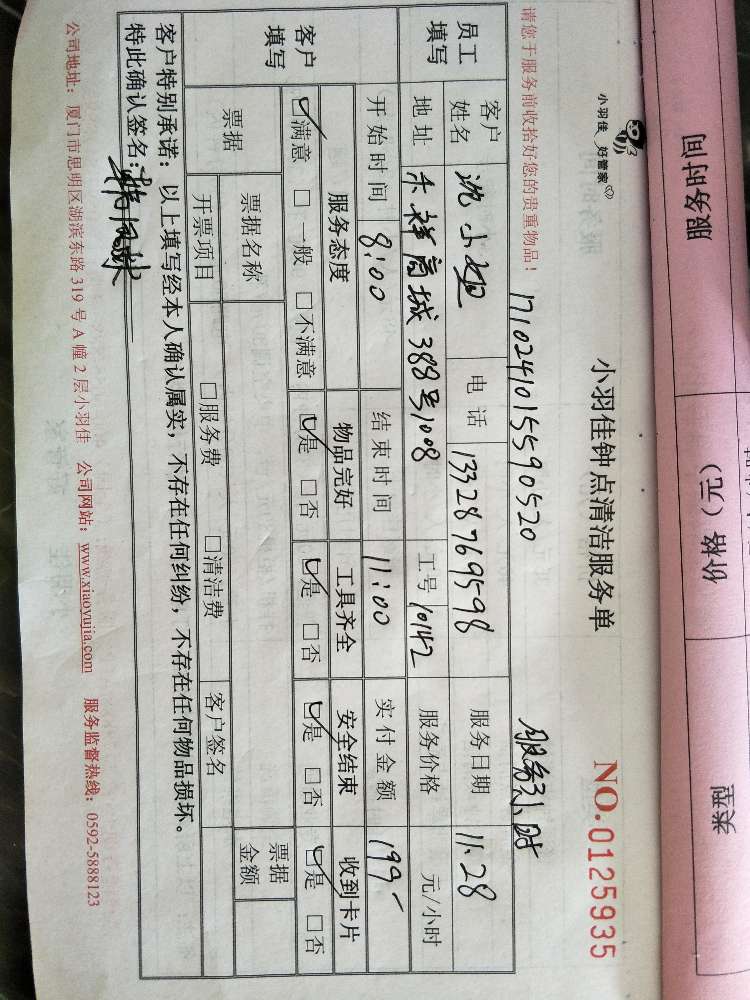 服务时间
价格（元）
类型
小羽佳 好管家
小羽佳钟点清洁服务单
NO.0125935
请您于服务前收拾好您的贵重物品！
1710241015590520
服务3小时
员工填写
客户姓名
沈小姐
电话
13328769598
服务日期
11.28
地址
禾祥商城388号1008
工号
10142
服务价格
元/小时
开始时间
8:00
结束时间
11:00
实付金额
199-
客户填写
服务态度
物品完好
工具齐全
安全结束
收到卡片
☑满意 □一般 □不满意
☑是 □否
☑是 □否
☑是 □否
☑是 □否
票据
票据名称
票据金额
开票项目
□服务费 □清洁费
客户签名
客户特别承诺：以上填写经本人确认属实，不存在任何纠纷，不存在任何物品损坏。
特此确认签名：
公司地址：厦门市思明区湖滨东路 319 号 A 幢 2 层小羽佳 公司网站：www.xiaoyujia.com 服务监督热线：0592-5888123